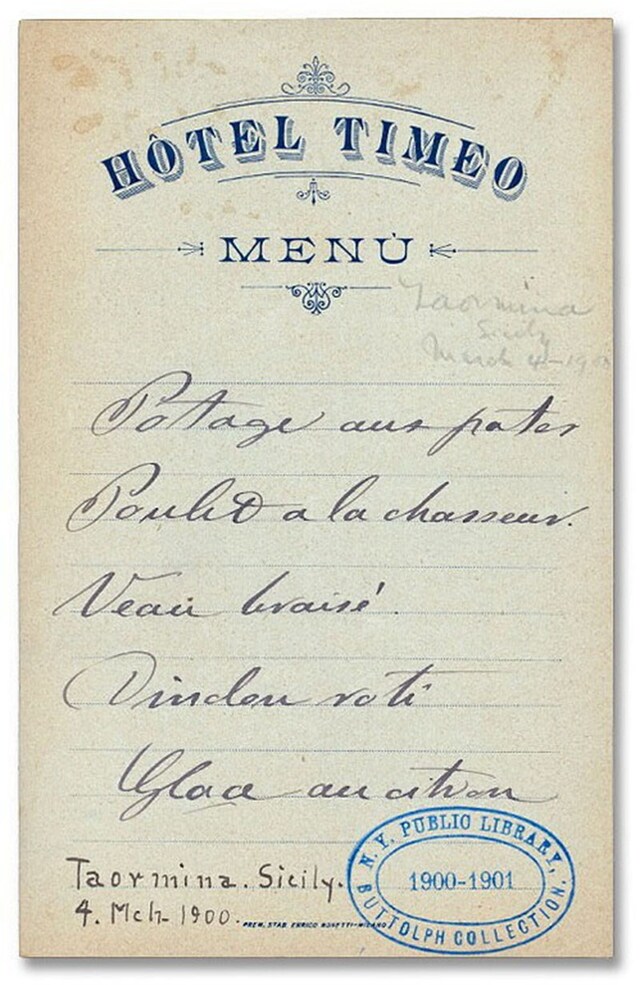 HÔTEL TIMEO
MENÙ
Taormina
Sicily
March 4-1900
Potage aux pates
Poulet a la chasseur.
Veau braisé.
Dindon roti
Glace au citron
Taormina. Sicily.
4. Mch- 1900.
PREM. STAB. ENRICO BONETTI-MILANO
N.Y. PUBLIC LIBRARY,
1900-1901
BUTTOLPH COLLECTION.